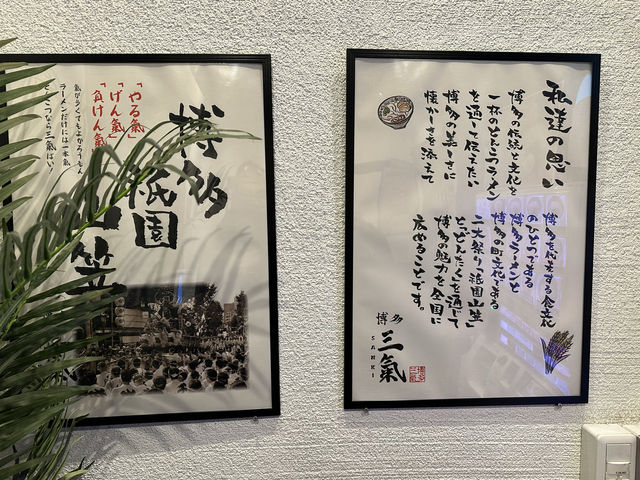 「やる氣」
「げん氣」
「負けん氣」
博多
祇園
山笠
私達の思い
博多の伝統と文化を
一杯のとんこつラーメン
を通して伝えたい
博多の美しさに
懐かしさを添えて
博多を代表する食文化
のひとつである
博多ラーメンと
博多の町文化である
二大祭り「祇園山笠」
と「どんたく」を通じて
博多の魅力を全国に
広めることです。
博多
三氣
SANKI